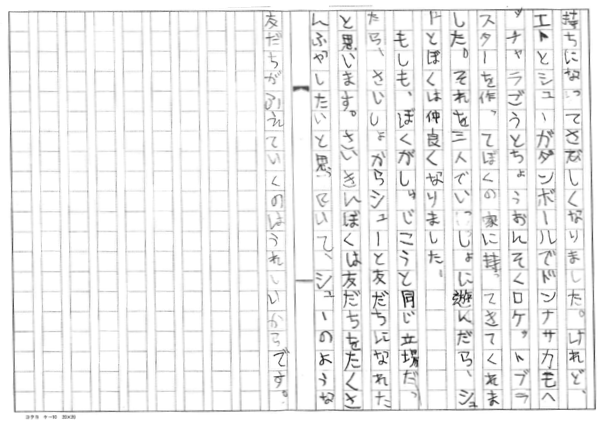 持ちになってさびしくなりました。けれど、
エトとシューがダンボールでドンナサカモヘ
ッチャラごうとちょうおんそくロケットブラ
スターを作ってぼくの家に持ってきてくれま
した。それを三人でいっしょに遊んだら、シュ
トとぼくは仲良くなりました。
もしも、ぼくがしゅじんこうと同じ立場だっ
たら、さいしょからシューと友だちになれた
と思います。さいきんぼくは友だちをたくさ
んふやしたいと思っていて、シューのような
友だちがふえていくのはうれしいからです。
コクヨ ケー10 20×20